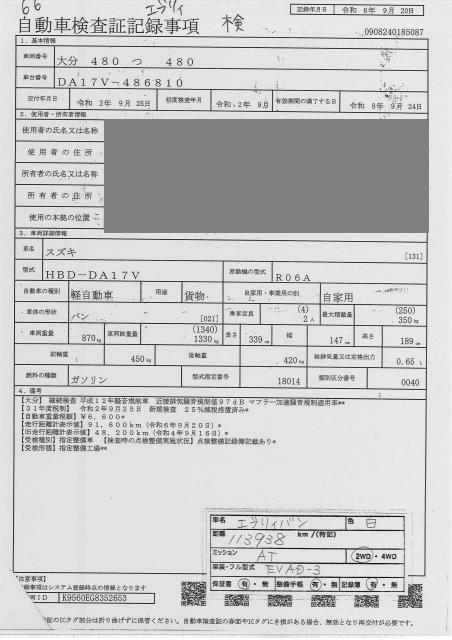 66
エブリィ
検
記録年月日 令和 6年 9月 20日
自動車検査証記録事項
0908240185087
1. 基本情報
車両番号 大分 480 つ 480
車台番号 DA17V-486810
交付年月日 令和 2年 9月 25日 初度検査年月 令和 2年 9月 有効期間の満了する日 令和 8年 9月 24日
2. 使用者・所有者情報
使用者の氏名又は名称
使用者の住所
所有者の氏名又は名称
所有者の住所
使用の本拠の位置
3. 車両詳細情報
車名 スズキ [131]
型式 HBD-DA17V 原動機の型式 R06A
自動車の種別 軽自動車 用途 貨物 自家用・事業用の別 自家用
車体の形状 バン [021] 乗車定員 (4) 2人 最大積載量 (250) 350kg
車両重量 870kg 車両総重量 (1340) 1330kg 長さ 339cm 幅 147cm 高さ 189cm
前軸重 450kg 後軸重 420kg 総排気量又は定格出力 0.65L
燃料の種類 ガソリン 型式指定番号 18014 類別区分番号 0040
4. 備考
【大分】 継続検査 平成12年軽騒音規制車 近接排気騒音規制値97dB マフラー加速騒音規制適用車**
【31年度税制】 令和2年9月25日 新規検査 25%減税措置済み*
【自動車重量税額】¥6,600*
【走行距離計表示値】91,600km(令和6年9月20日)*
【旧走行距離計表示値】48,200km(令和4年9月16日)*
【受検種別】指定整備車 【検査時の点検整備実施状況】点検整備記録簿記載あり*
【受検形態】指定整備工場**
車名 エブリィバン 色 白
距離 113938 km/(特記)
ミッション AT 2WD・4WD
類装・フル型式 EVAD-3
保証書 有・無 整備手帳 有・無 記録簿 有・無
【注意事項】
記録事項はシステム登録時点の情報となります
ID K9560EG8352653
証のICタグ部分は折り曲げずに保管ください。自動車検査証の券面やICタグにき損がある場合、無効となり再交付が必要です。